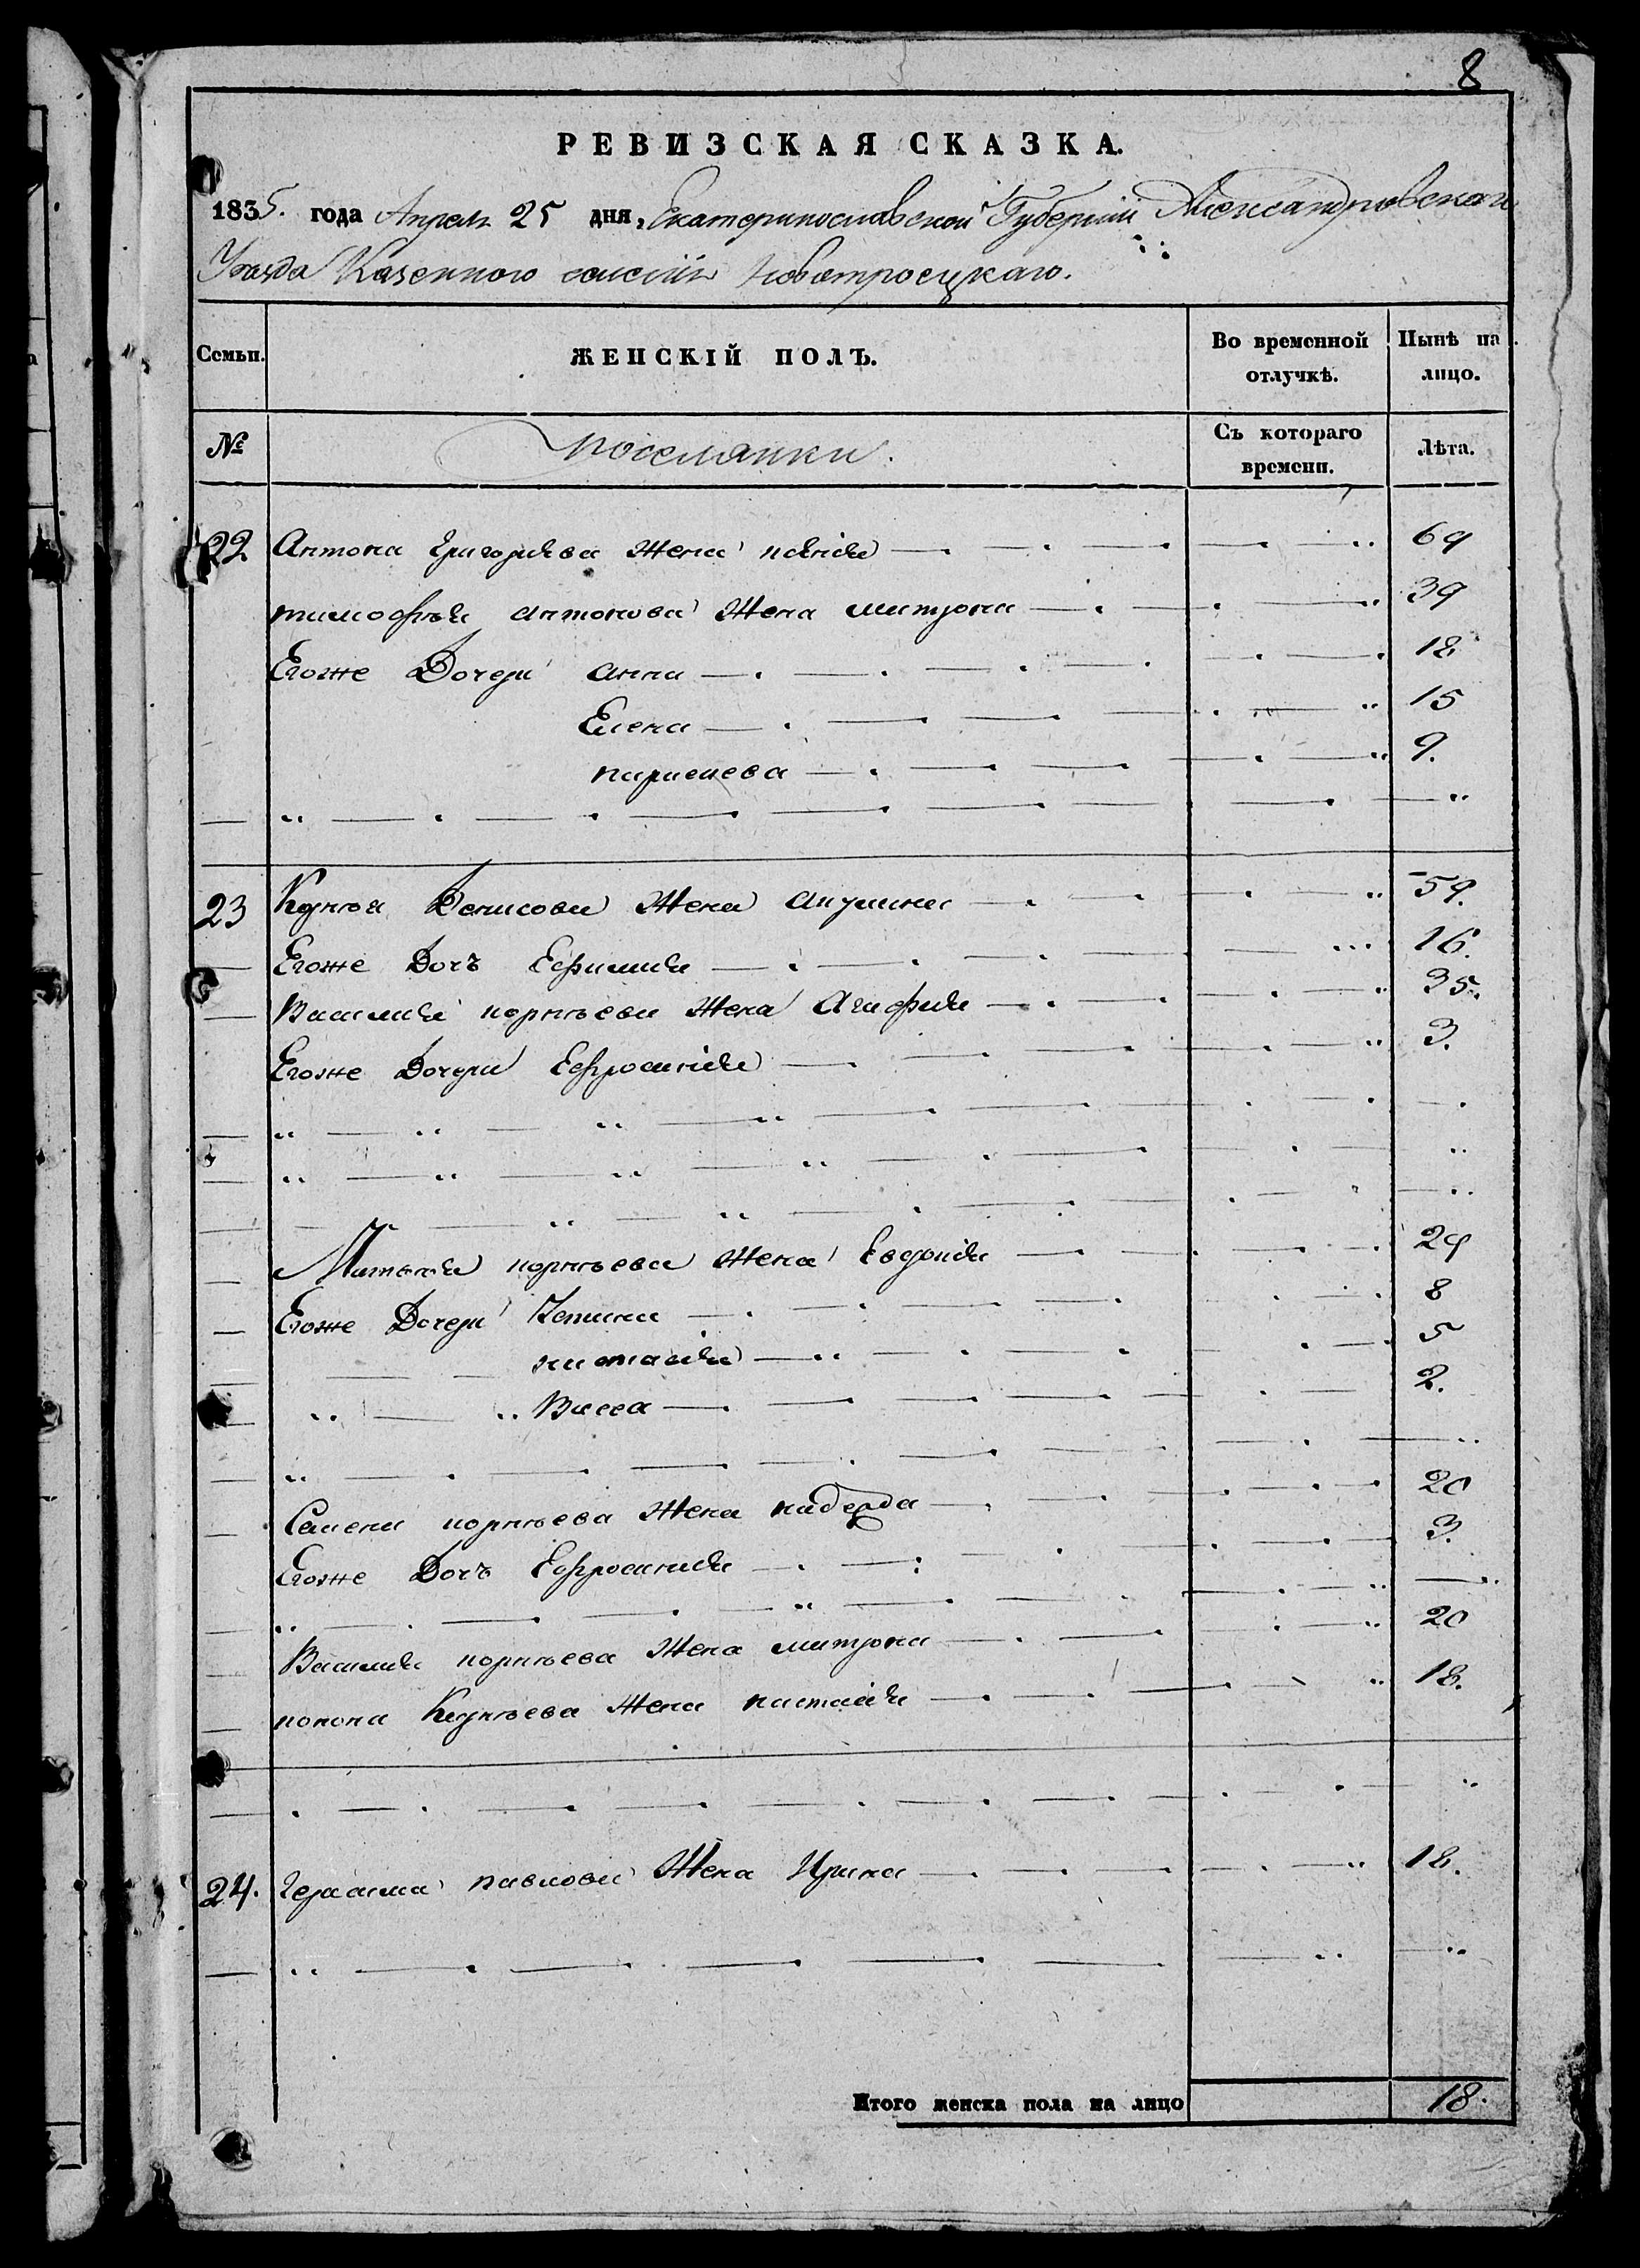 8
РЕВИЗСКАЯ СКАЗКА.
1835. года Апреля 25 дня, Екатеринославской Губернии Александровскаго
Уезда Казенного селения Новотроецкаго.
Семьи. ЖЕНСКІЙ ПОЛЪ. Во временной отлучкѣ. Нынѣ на лицо.
№ поселянки. Съ котораго времени. Лѣта.
22 Антона Григорьева жена 69
тимофея антонова жена матрона 39
Егоже Дочери анна 18
Елена 15
параскева 9.
23 Денисова жена акулина 59.
Егоже Дочъ Ефимия 16.
Василия корнѣева жена Агафия 35.
Егоже Дочери Ефросиния 3.
корнѣева жена Евдокия 29
Егоже Дочери 8
настасия 5
Васса 2.
Семена корнѣева жена надежда 20
Егоже Дочъ Ефросиния 3.
Василия корнѣева жена матрона 20
жена настасия 18.
24. Герасима павлова жена Ирина 18.
Итого женска пола на лицо 18.